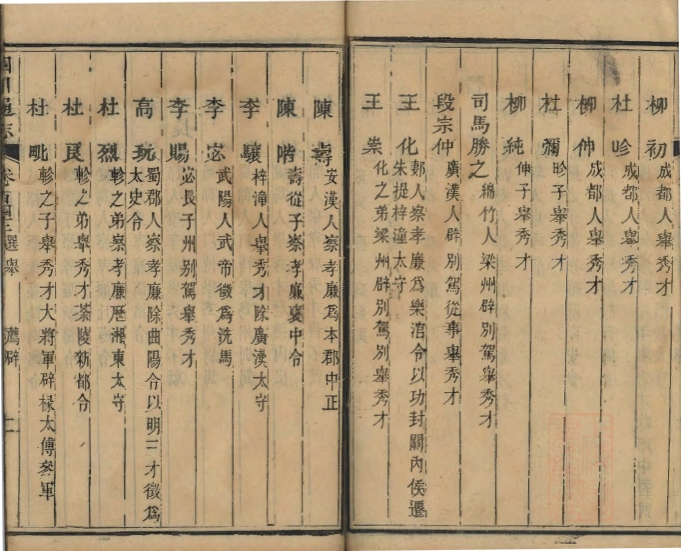 柳初 成都人舉秀才
杜軫 成都人舉秀才
柳伸 成都人舉秀才
杜彌 軫子舉秀才
柳純 伸子舉秀才
司馬勝之 綿竹人梁州辟別駕舉秀才
段宗仲 廣漢人辟別駕從事舉秀才
王化 郪人察孝廉爲樂涫令以功封關內侯遷
朱提梓潼太守
王崇 化之弟梁州辟別駕別舉秀才
陳壽 安漢人察孝廉爲本郡中正
陳階 壽從子察孝廉襃中令
李驤 梓潼人舉秀才除廣漢太守
李宓 武陽人武帝徵爲洗馬
李賜 宓長子州別駕舉秀才
高玩 蜀郡人察孝廉除曲陽令以明三才徵爲
太史令
杜烈 軫之弟察孝廉歷湘東太守
杜良 軫之弟舉秀才茶陵新都令
杜毗 軫之子舉秀才大將軍辟椽太傅參軍
四川通志 卷百四三 選舉 薦辟 十一